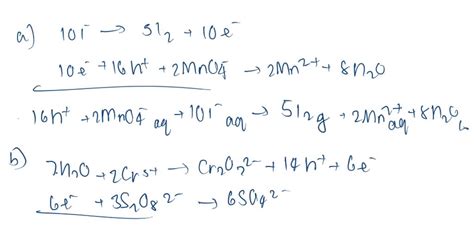 a) 10I⁻ → 5I₂ + 10e⁻
10e⁻ + 16H⁺ + 2MnO₄⁻ → 2Mn²⁺ + 8H₂O
16H⁺ + 2MnO₄⁻ aq + 10I⁻ aq → 5I₂g + 2Mn²⁺ aq + 8H₂O L
b) 7H₂O + 2Cr³⁺ → Cr₂O₇²⁻ + 14H⁺ + 6e⁻
6e⁻ + 3S₂O₈²⁻ → 6SO₄²⁻